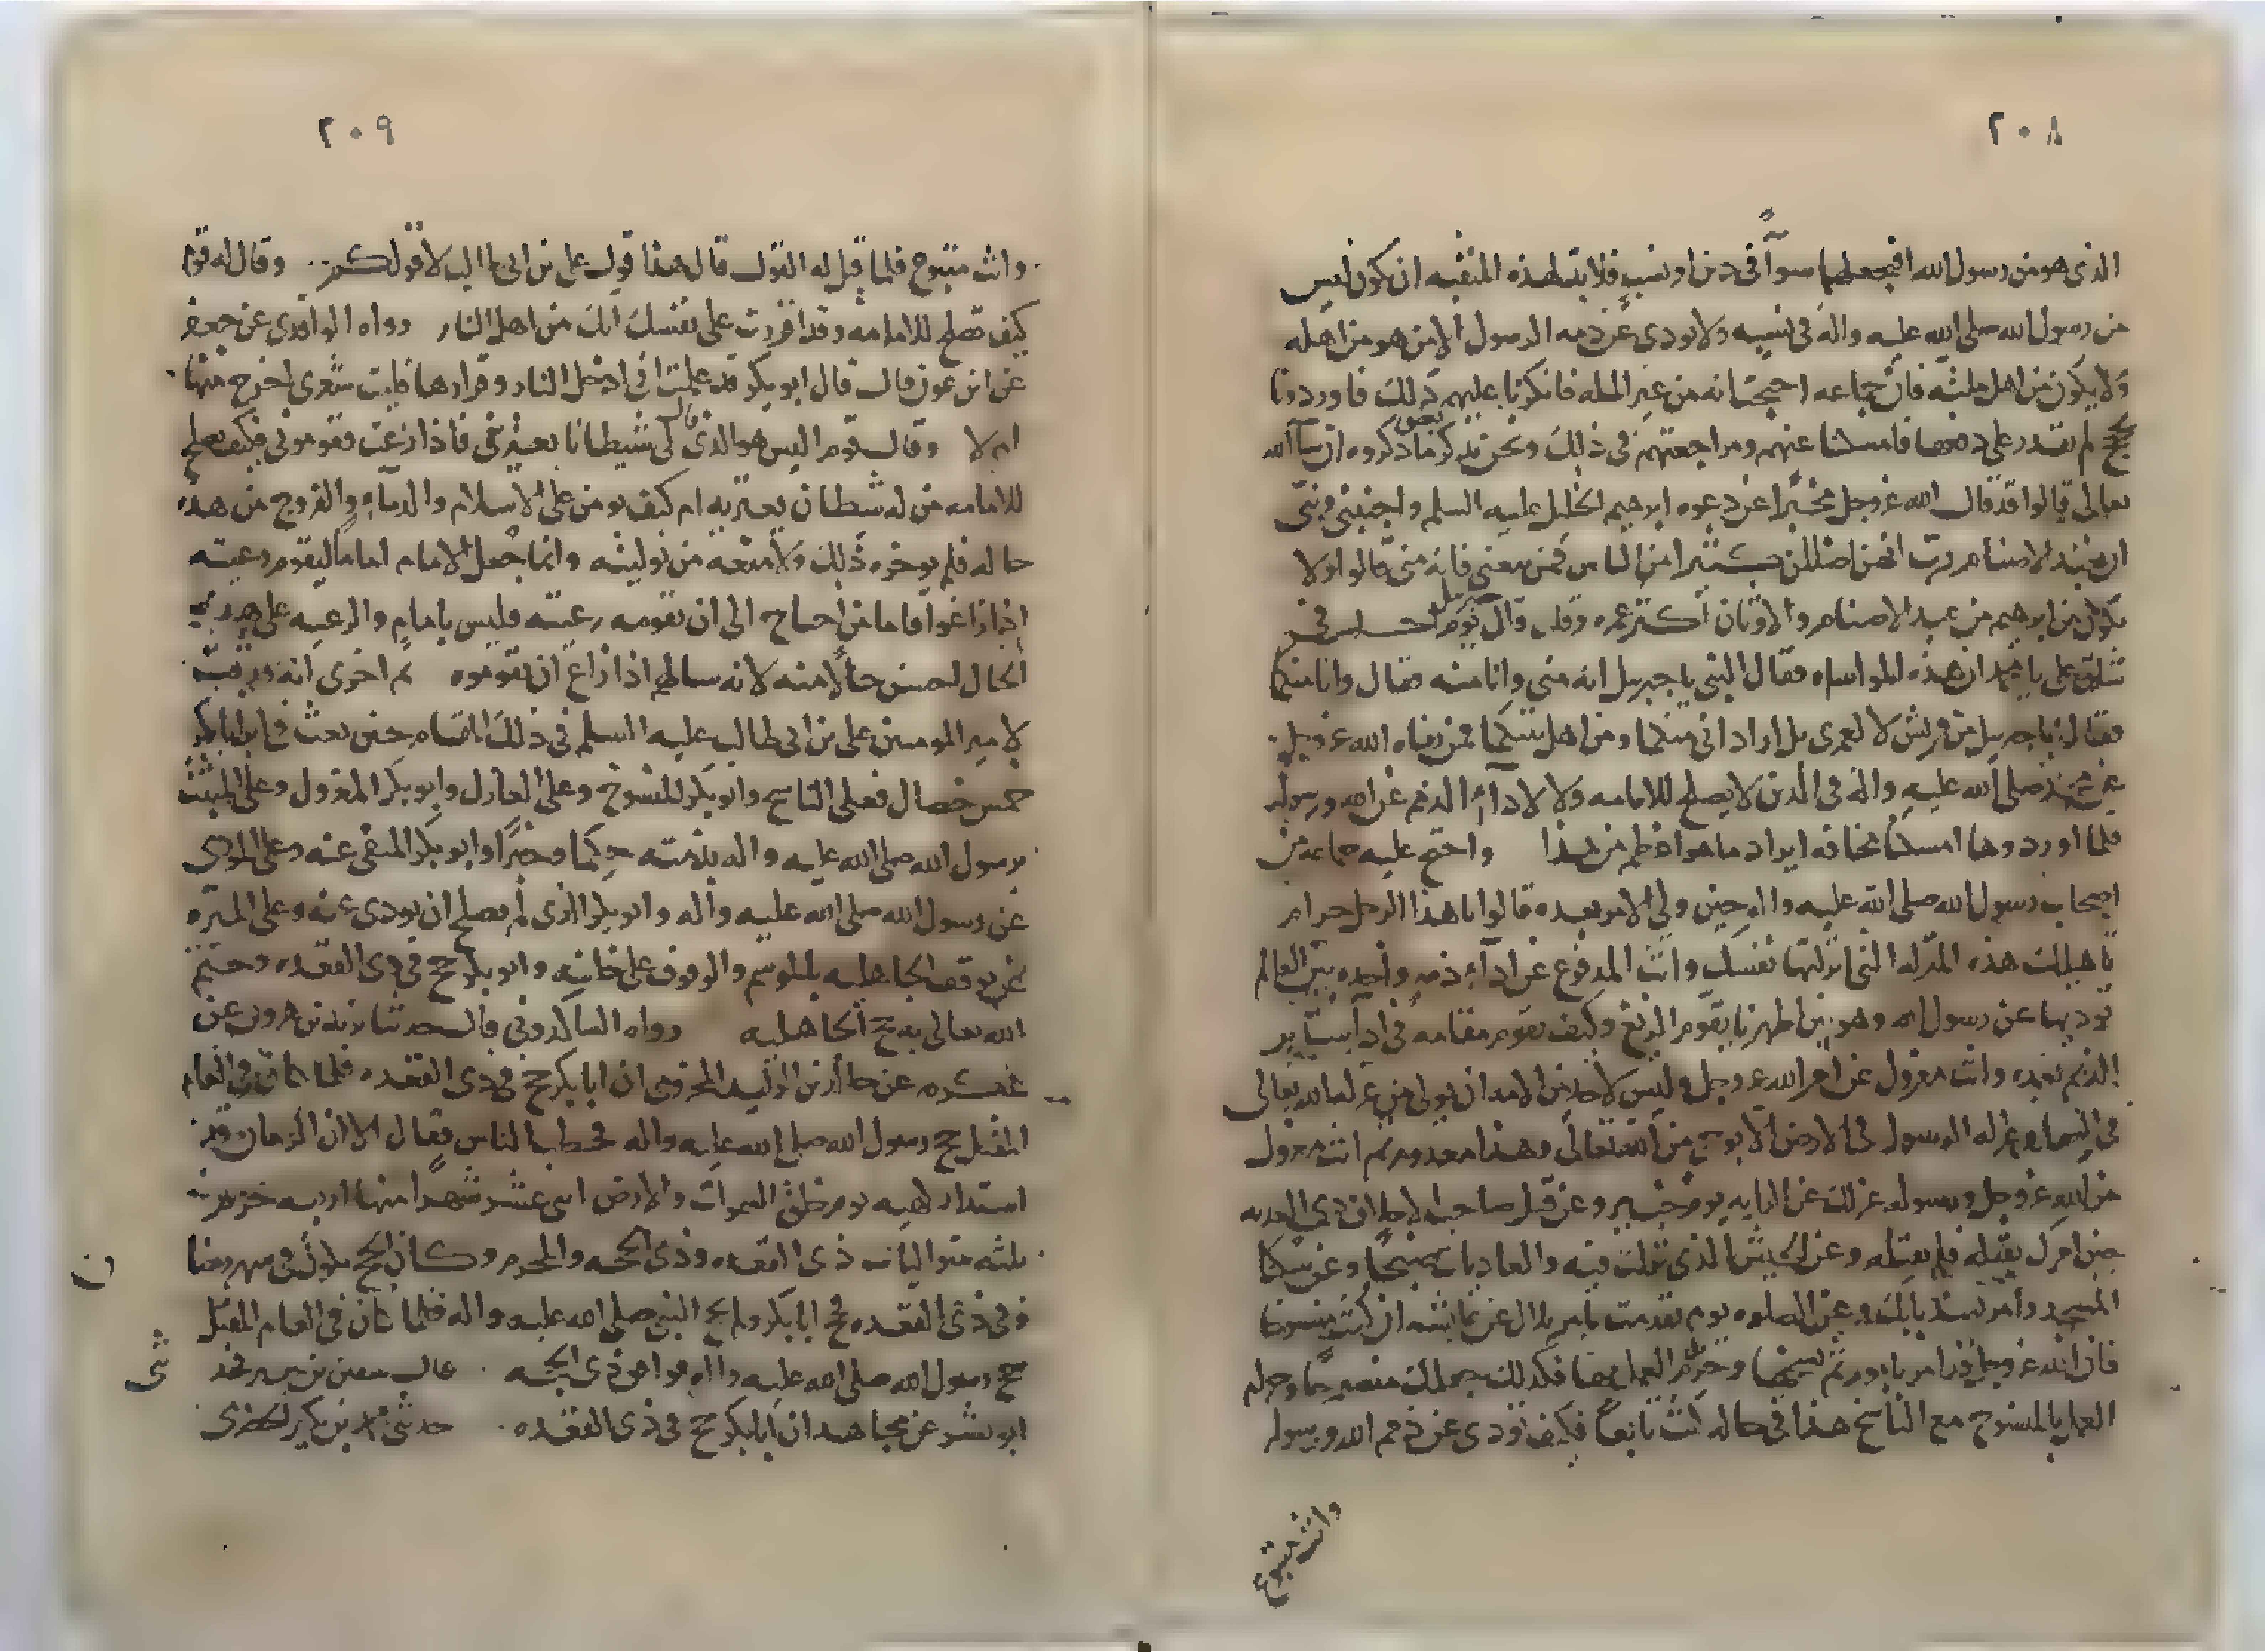 ٢٠٨
الذى هو من رسول الله افيجعلهما سوآً فى دين او نسب فلا بد لهذه المنقبه ان يكون ليس
من رسول الله صلى الله عليه واله فى نسبه ولا يودى عن ذمه الرسول الا من هو من اهله
ولا يكون من اهل ملته فان جماعه احتجت انه من غير المله فانكرنا عليهم ذلك فاوردوا
حجج لم نقدر على دفعها فامسكنا عنهم ومراجعتهم فى ذلك ونحن نذكر ما ذكروه ان شآ الله
تعالى قالوا قد قال الله عز وجل مخبرًا عن دعوه ابرهيم الخليل عليه السلم واجنبنى وبنى
ان نعبد الاصنام رب انهن اضللن كثيرا من الناس فمن تبعنى فانه منى قالوا ولا
يكون من ابرهيم من عبد الاصنام والاوثان اكثر عمره وقد قال يوم احد جبريل
على يا محمد ان هذه المواساه فقال النبى يا جبريل انه منى وانا منه فقال وانا منكما
فقال يا جبريل من قريش لا لعمرى بل اراد انى منكما ومن اهل فمن نفاه الله عز وجل
عن محمد صلى الله عليه واله فى الدين لا يصلح للامامه ولا لادآء الذمم عن الله ورسوله
فلما اوردوها امسكنا مخافه ايراد ما هو اعظم من هذا واحتج عليه جماعه من
اصحاب رسول الله صلى الله عليه واله حين ولى الامر بعده قالوا يا هذا الرجل حرام
هذه المنزله التى انزلتها نفسك وانت المدفوع عن ادآء ذمه واحده بين العالم
توديها عن رسول الله وهو بين اظهرنا وكيف تقوم مقامه فى ادآ ساير
الذمم بعده وانت معزول عن امر الله عز وجل وليس لاحد من الامه ان يولى من عزله الله تعالى
فى السما وعزله الرسول فى الارض الا بوحى من الله تعالى وهذا معدوم ثم انت معزول
من الله عز وجل ورسوله عزلك عن الرايه يوم خيبر وعن قتل صاحب
حين امرك بقتله فلم تقتله وعن الجيش الذى نزلت فيه والعاديات ضبحًا وعن سكنا
المسجد وامر بسد بابك وعن الصلوه يوم تقدمت بامر بلال عن عايشه ان كنت منسوخا
فان الله عز وجل قد امر بامور ثم نسخها وحرم العمل بها فكذلك
العمل بالمنسوخ مع الناسخ هذا فى حاله كنت تابعا فكيف تودى عن ذمم الله ورسوله
وانت متبوع
٢٠٩
وانت متبوع فلما قيل له القول قال هذا قول على بن ابى طالب لا قولكم وقال له قوم
كيف تصلح للامامه وقد اقررت على نفسك انك من اهل النار رواه الواقدى عن جعفر
عن ابن عون قال قال ابو بكر قد علمت انى ادخل النار وقرارها فليت شعرى اخرج منها
ام لا وقال قوم اليس هو الذى قال لى شيطانا يعترينى فاذا زغت فقومونى فكيف يصلح
للامامه من له شيطان يعتريه ام كيف يومن على الاسلام والدمآء والفروج من هذه
حاله فلم يوخره ذلك ولا منعه من توليته وانما جعل الامام اماما ليقوم رعيته
اذا زاغوا فاما من احتاج الى ان تقومه رعيته فليس بامام والرعيه على هذه
الحال احسن حالًا منه لانه سالهم اذا زاغ ان يقوموه ثم اخرى انه وجبت
لامير المومنين على بن ابى طالب عليه السلم فى ذلك المقام حين بعث فى ابا بكر
خمس خصال فعلى الناسخ وابو بكر المنسوخ وعلى العازل وابو بكر المعزول وعلى المثبت
برسول الله صلى الله عليه واله بذمته حكما وخبرًا وابو بكر المنفى عنه وعلى المودى
عن رسول الله صلى الله عليه واله وابو بكر الذى لم يصلح ان يودى عنه وعلى المنزه
عن موقف الجاهليه بالموسم والوقوف على وابو بكر حج فى ذى القعده وختم
الله تعالى به حج الجاهليه رواه الشاذكونى قال حدثنا يزيد بن هرون عن
عكرمه عن المخزومى ان ابا بكر حج فى ذى القعده فلما كان فى العام
المقبل حج رسول الله صلى الله عليه واله فخطب الناس فقال الا ان الزمان قد
استدار لهيئه يوم خلق السموات والارض اثنى عشر شهرا منها اربعه حرم
ثلثه متواليات ذى القعده وذى الحجه والمحرم وكان الحج
فى ذى القعده حج ابا بكر ولم يحج النبى صلى الله عليه واله فلما كان فى العام المقبل
حج رسول الله صلى الله عليه واله فوافق ذى الحجه قال
ابو بشر عن مجاهد ان ابا بكر حج فى ذى القعده حدثنى بن بكير